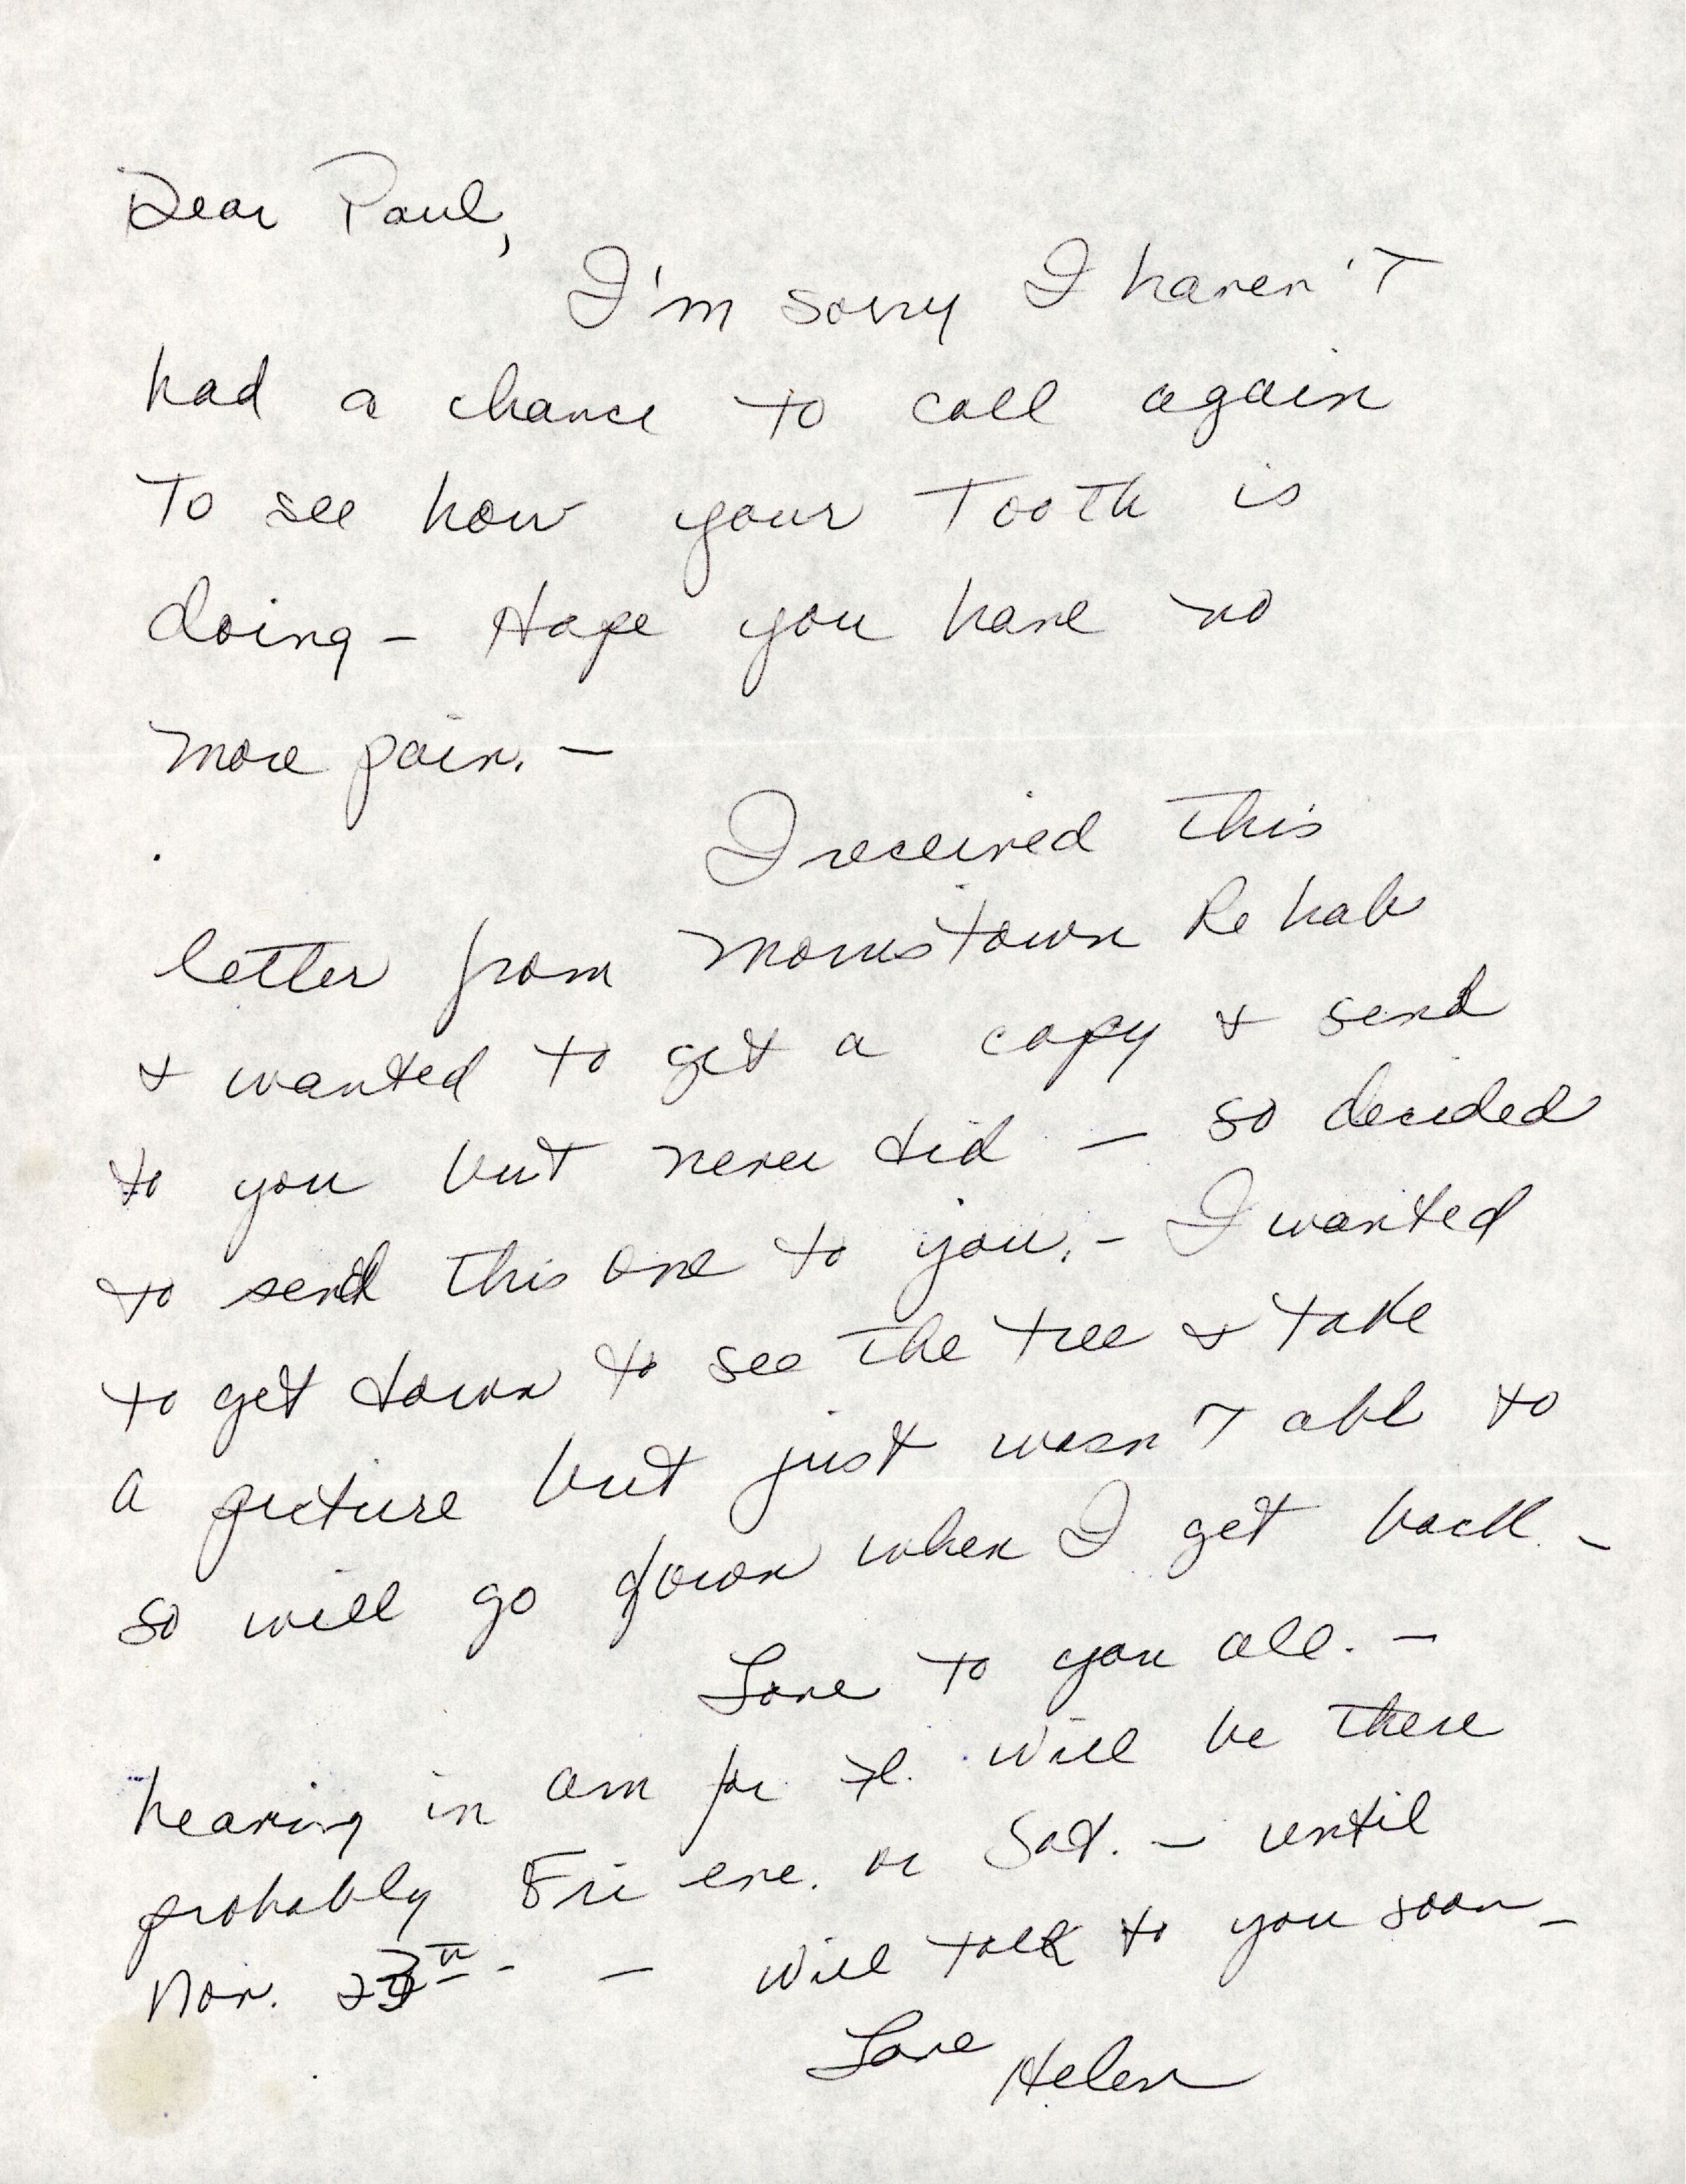 Dear Paul,
I'm sorry I haven't
had a chance to call again
to see how your tooth is
doing - Hope you have no
more pain. -
I received this
letter from Morristown Rehab
& wanted to get a copy & send
to you but never did - so decided
to send this one to you. - I wanted
to get down to see the tree & take
a picture but just wasn't able to
so will go down when I get back -
Love to you all. -
Leaving in am for Fl. will be there
probably Fri eve. or Sat. - until
Nov. - - will talk to you soon -
Love Helen